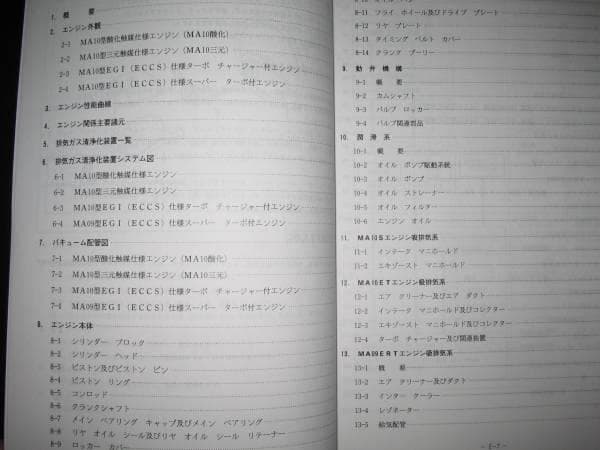 1. 概 要
2. エンジン外観
2-1 MA10型酸化触媒仕様エンジン（MA10酸化）
2-2 MA10型三元触媒仕様エンジン（MA10三元）
2-3 MA10型EGI（ECCS）仕様ターボ チャージャー付エンジン
2-4 MA10型EGI（ECCS）仕様スーパー ターボ付エンジン
3. エンジン性能曲線
4. エンジン関係主要諸元
5. 排気ガス清浄化装置一覧
6. 排気ガス清浄化装置システム図
6-1 MA10型酸化触媒仕様エンジン
6-2 MA10型三元触媒仕様エンジン
6-3 MA10型EGI（ECCS）仕様ターボ チャージャー付エンジン
6-4 MA09型EGI（ECCS）仕様スーパー ターボ付エンジン
7. バキューム配管図
7-1 MA10型酸化触媒仕様エンジン（MA10酸化）
7-2 MA10型三元触媒仕様エンジン（MA10三元）
7-3 MA10型EGI（ECCS）仕様ターボ チャージャー付エンジン
7-4 MA09型EGI（ECCS）仕様スーパー ターボ付エンジン
8. エンジン本体
8-1 シリンダー ブロック
8-2 シリンダー ヘッド
8-3 ピストン及びピストン ピン
8-4 ピストン リング
8-5 コンロッド
8-6 クランクシャフト
8-7 メイン ベアリング キャップ及びメイン ベアリング
8-8 リヤ オイル シール及びリヤ オイル シール リテーナー
8-9 ロッカー カバー
8-11 フライ ホイール及びドライブ プレート
8-12 リヤ プレート
8-13 タイミング ベルト カバー
8-14 クランク プーリー
9. 動弁機構
9-1 概 要
9-2 カムシャフト
9-3 バルブ ロッカー
9-4 バルブ関連部品
10. 潤滑系
10-1 概 要
10-2 オイル ポンプ駆動系統
10-3 オイル ポンプ
10-4 オイル ストレーナー
10-5 オイル フィルター
10-6 エンジン オイル
11. MA10Sエンジン吸排気系
11-1 インテーク マニホールド
11-2 エキゾースト マニホールド
12. MA10ETエンジン吸排気系
12-1 エア クリーナー及びエア ダクト
12-2 インテーク マニホールド及びコレクター
12-3 エキゾースト マニホールド及びコレクター
12-4 ターボ チャージャー及び関連装置
13. MA09ERTエンジン吸排気系
13-1 概 要
13-2 エア クリーナー及びダクト
13-3 インター クーラー
13-4 レゾネーター
13-5 給気配管